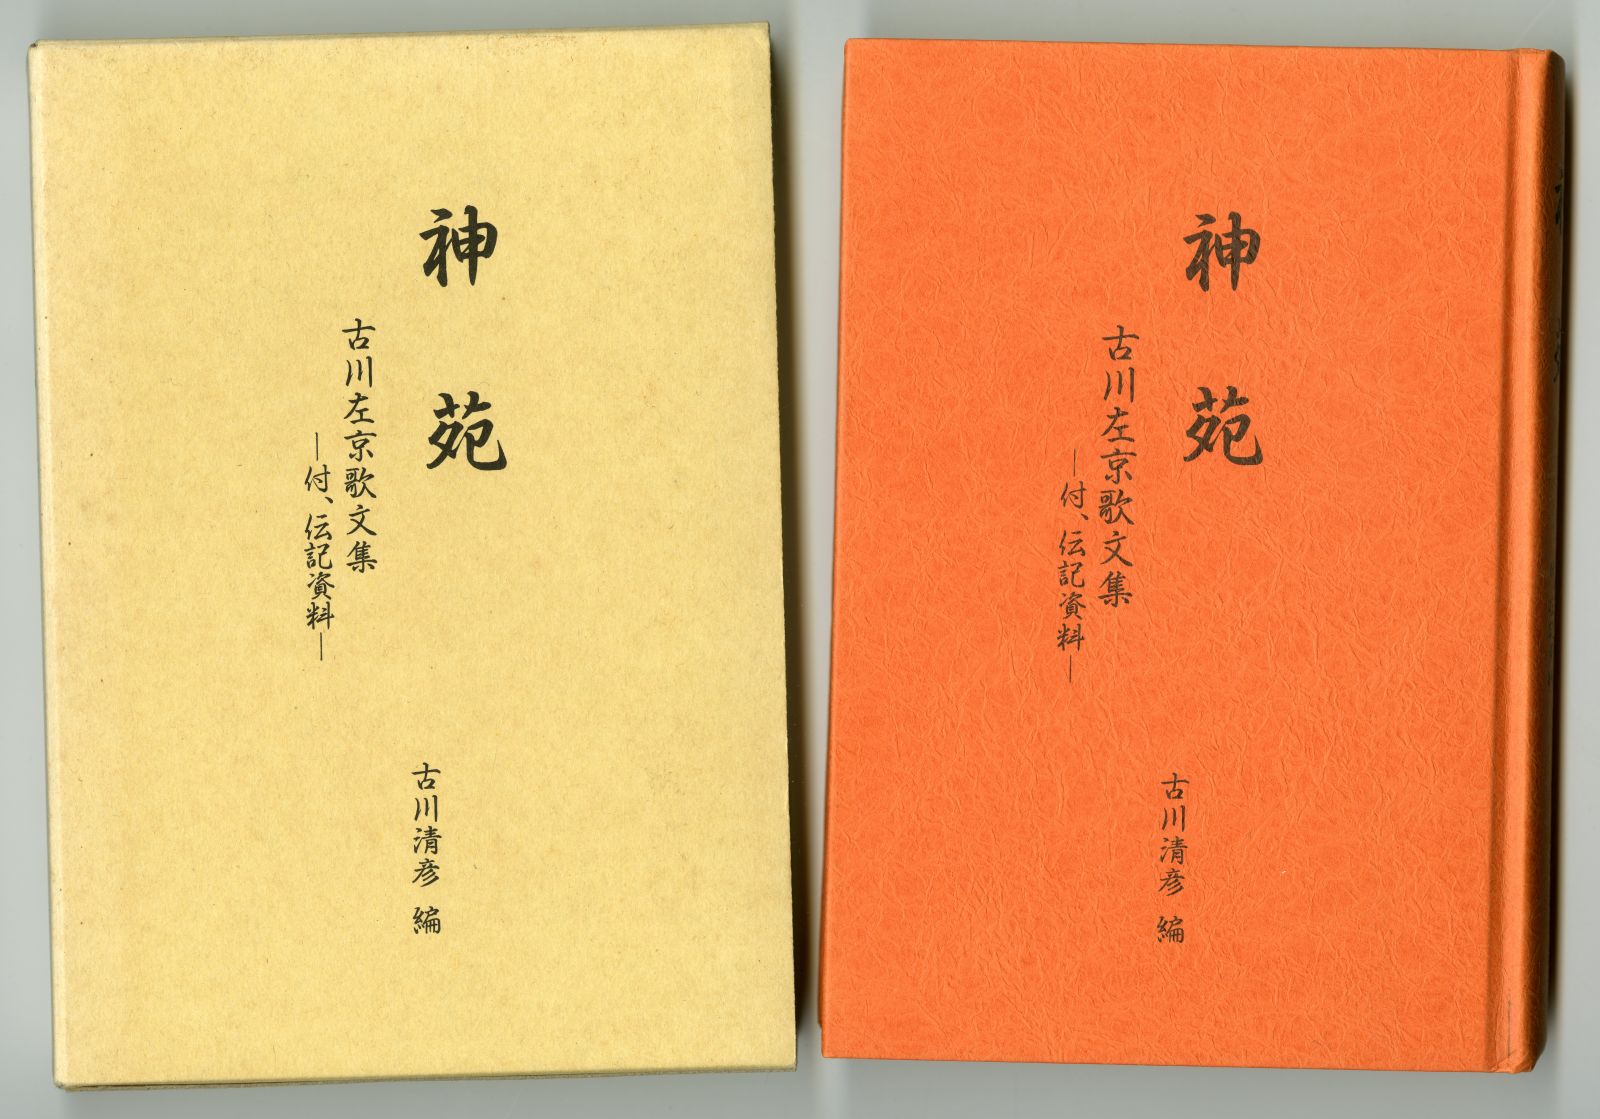 神苑
古川左京歌文集
―付、伝記資料―
古川清彦 編
神苑
古川左京歌文集
―付、伝記資料―
古川清彦 編